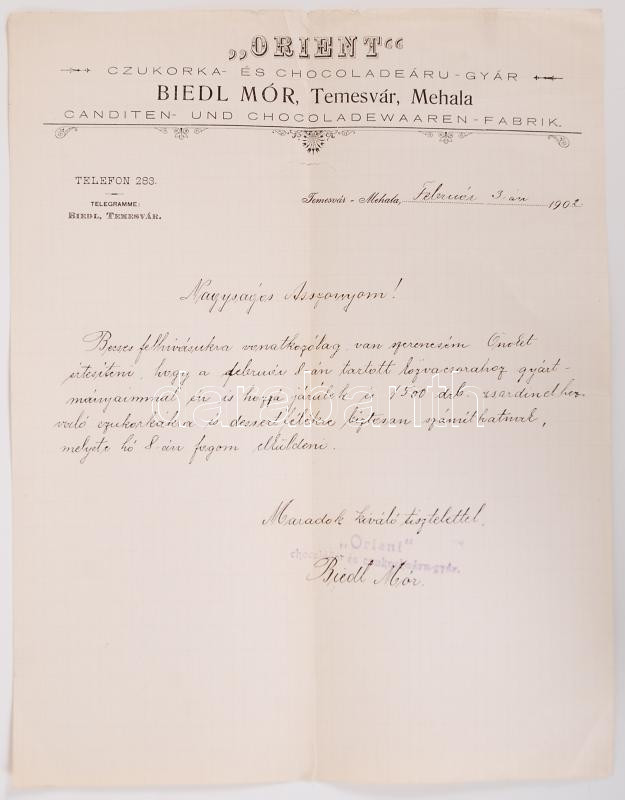 „ORIENT“
CZUKORKA- ÉS CHOCOLADEÁRU-GYÁR
BIEDL MÓR, Temesvár, Mehala
CANDITEN- UND CHOCOLADEWAAREN-FABRIK.
TELEFON 283.
TELEGRAMME:
BIEDL, TEMESVÁR.
Temesvár - Mehala, Február 3-án 1902
Nagyságos Asszonyom!
Becses felhivásukra vonatkozólag van szerencsém Önöket
értesíteni, hogy a február 8-án tartott közvacsorához gyárt-
mányaimmal én is hozzá járúlok és 1500 drb.
való czukorkákra és dessertekre biztosan számithatnak,
melyeket hó 8-án fogom elküldeni.
Maradok kiváló tisztelettel
„Orient“
Biedl Mór.
darabanth